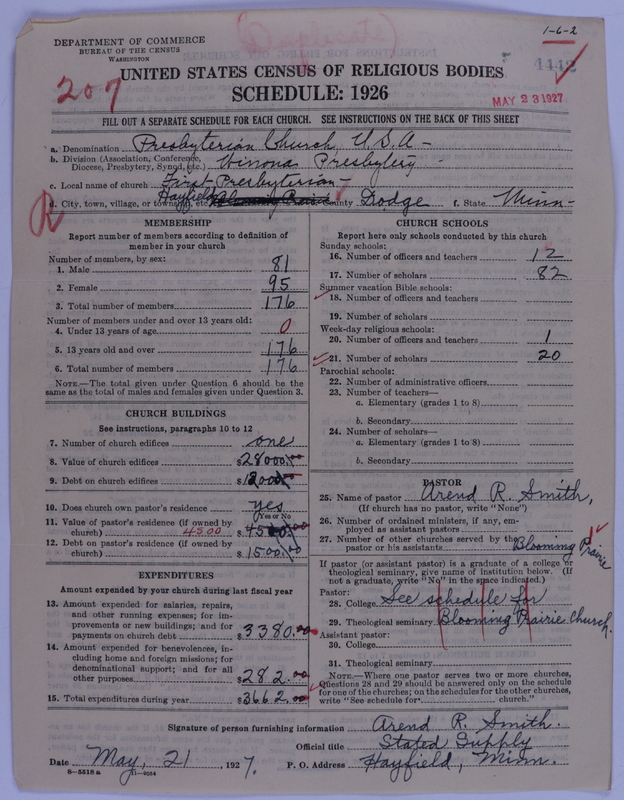 1-6-2
DEPARTMENT OF COMMERCE
BUREAU OF THE CENSUS
WASHINGTON
4442
207
UNITED STATES CENSUS OF RELIGIOUS BODIES
SCHEDULE: 1926
MAY 23 1927
FILL OUT A SEPARATE SCHEDULE FOR EACH CHURCH. SEE INSTRUCTIONS ON THE BACK OF THIS SHEET
a. Denomination Presbyterian Church, U.S.A-
b. Division (Association, Conference, Diocese, Presbytery, Synod, etc.) Winona Presbytery-
c. Local name of church First-Presbyterian-
d. City, town, village, or township, etc. Hayfield Blooming Prairie County Dodge f. State Minn-
R
MEMBERSHIP
Report number of members according to definition of
member in your church
Number of members, by sex:
1. Male 81
2. Female 95
3. Total number of members 176
Number of members under and over 13 years old:
4. Under 13 years of age 0
5. 13 years old and over 176
6. Total number of members 176
NOTE.—The total given under Question 6 should be the
same as the total of males and females given under Question 3.
CHURCH BUILDINGS
See instructions, paragraphs 10 to 12
7. Number of church edifices one
8. Value of church edifices $28000.00
9. Debt on church edifices $12000.00
10. Does church own pastor's residence yes
(Yes or No)
11. Value of pastor's residence (if owned by
church) 4500 $4500.00
12. Debt on pastor's residence (if owned by
church) $1500.00
EXPENDITURES
Amount expended by your church during last fiscal year
13. Amount expended for salaries, repairs,
and other running expenses; for im-
provements or new buildings; and for
payments on church debt $3380.00
14. Amount expended for benevolences, in-
cluding home and foreign missions; for
denominational support; and for all
other purposes $282.00
15. Total expenditures during year $3662.00
CHURCH SCHOOLS
Report here only schools conducted by this church
Sunday schools:
16. Number of officers and teachers 12
17. Number of scholars 82
Summer vacation Bible schools:
18. Number of officers and teachers
19. Number of scholars
Week-day religious schools:
20. Number of officers and teachers 1
21. Number of scholars 20
Parochial schools:
22. Number of administrative officers
23. Number of teachers—
a. Elementary (grades 1 to 8)
b. Secondary
24. Number of scholars—
a. Elementary (grades 1 to 8)
b. Secondary
PASTOR
25. Name of pastor Arend R. Smith,
(If church has no pastor, write "None")
26. Number of ordained ministers, if any, em-
ployed as assistant pastors
27. Number of other churches served by the
pastor or his assistants Blooming Prairie 1
If pastor (or assistant pastor) is a graduate of a college or
theological seminary, give name of institution below. (If
not a graduate, write "No" in the space indicated.)
Pastor:
28. College See schedule for
29. Theological seminary Blooming Prairie Church.
Assistant pastor:
30. College
31. Theological seminary
NOTE.—Where one pastor serves two or more churches,
Questions 28 and 29 should be answered only on the schedule
for one of the churches; on the schedules for the other churches,
write "See schedule for church."
Signature of person furnishing information Arend R. Smith.
Official title Stated Supply
Date May, 21, 1927. P. O. Address Hayfield, Minn.
8—5518 a 11—9054